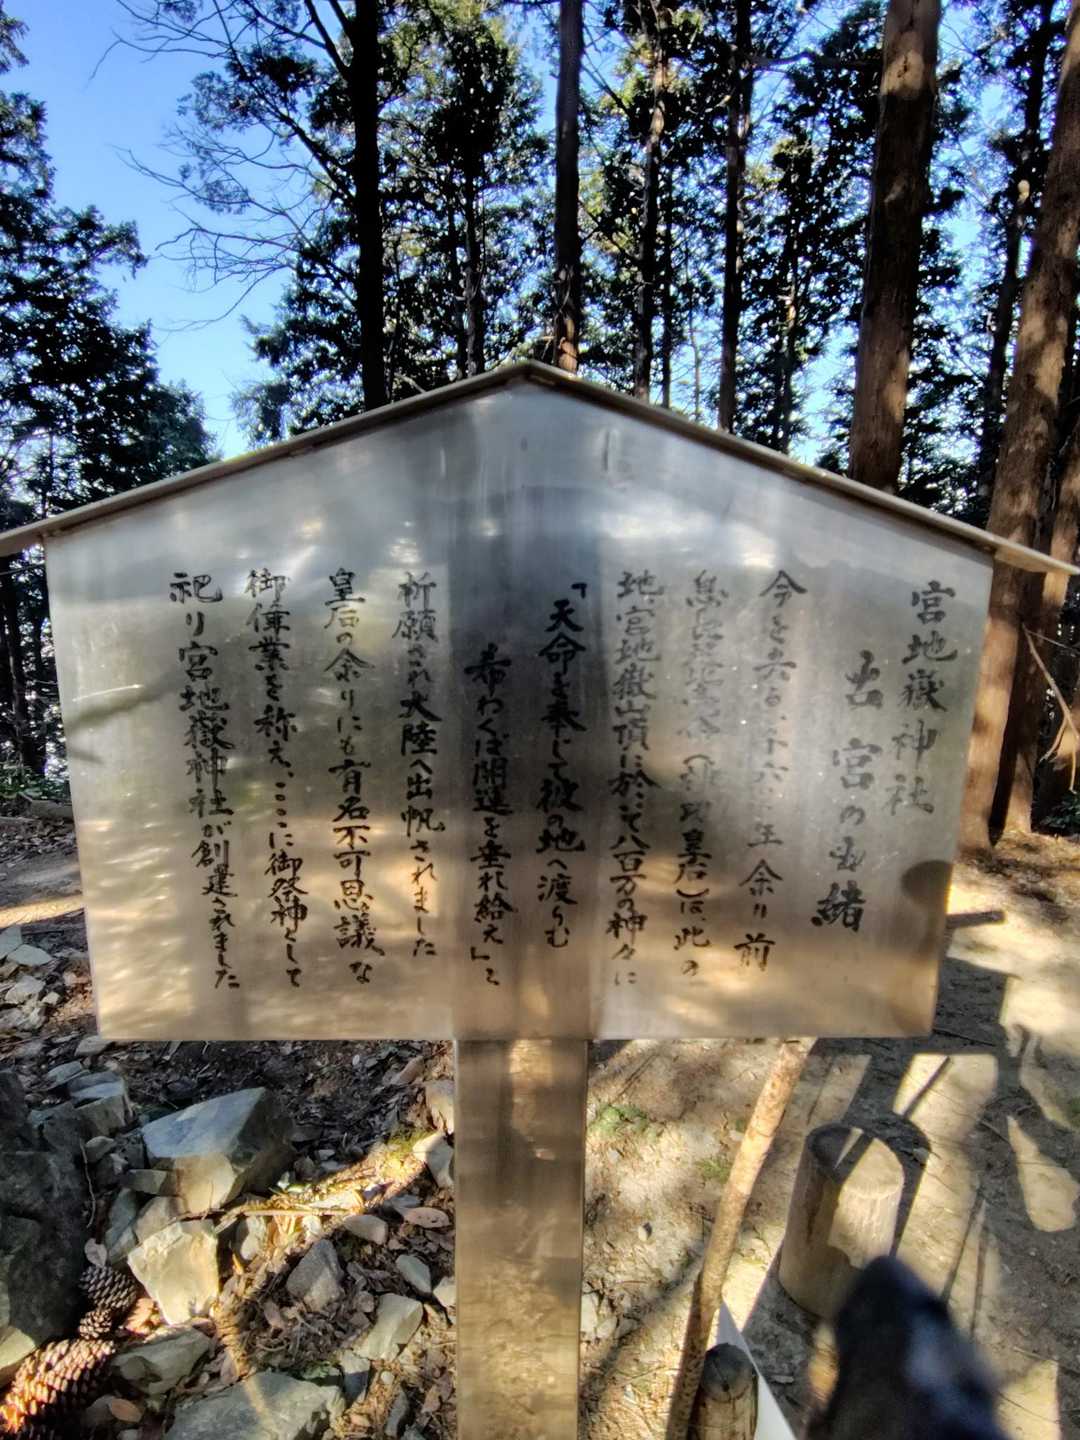 宮地嶽神社
古宮の由緒
今を去る、千六百年余り前
息長足比売命(神功皇后)は、此の
地宮地嶽山頂に於いて八百万の神々に
「天命を奉じて彼の地へ渡らむ
希わくば開運を垂れ給え」と
祈願され大陸へ出帆されました
皇后の余りにも有名不可思議な
御偉業を称え、ここに御祭神として
祀り宮地嶽神社が創建されました